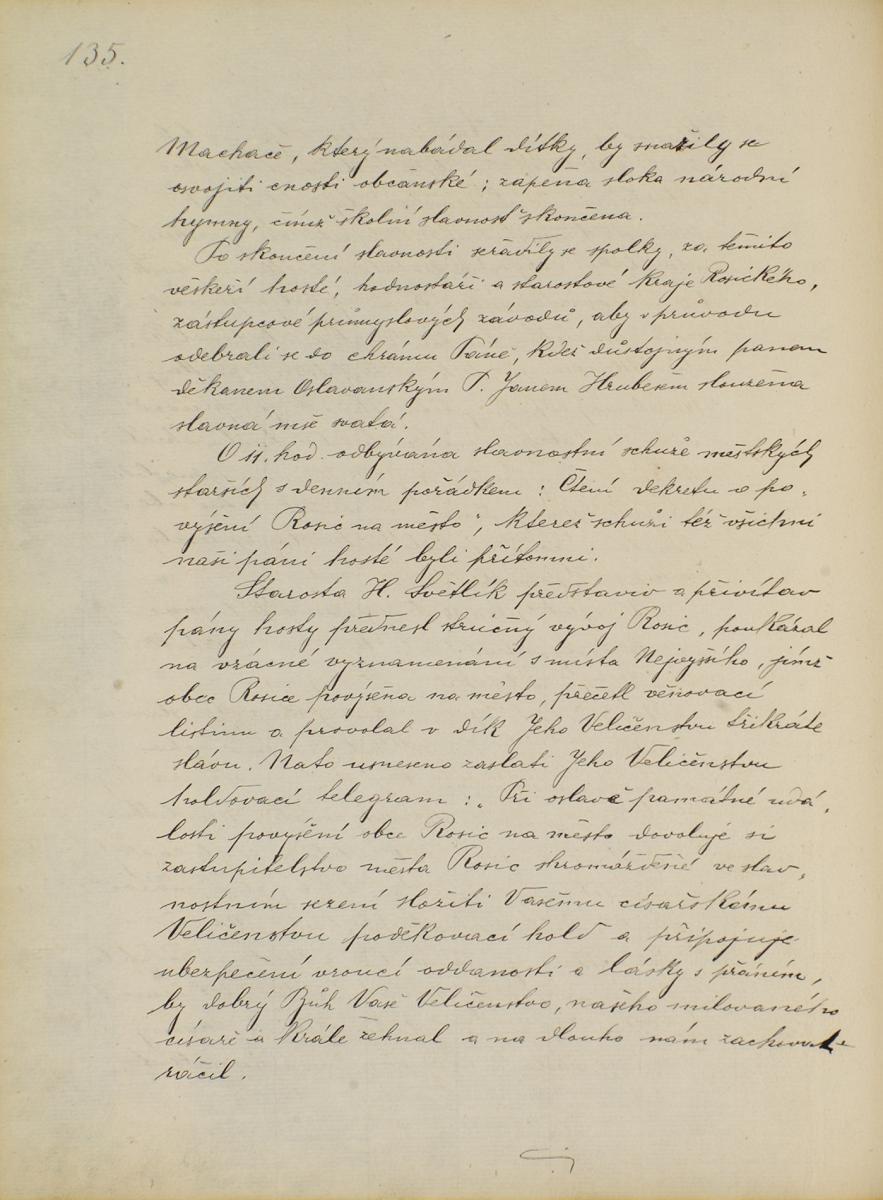 135.
Machače, který nabádal dítky, by snažily se
osvojiti cnosti občanské; zapěna sloka národní
hymny, čímž školní slavnosť skončena.
Po skončení slavnosti seřadily se spolky, za těmito
věškeří hosté, hodnostáři a starostové kraje Rosického,
zástupcové průmyslových závodů, aby v průvodu
odebrali se do chrámu Páně, kdež důstojným panem
děkanem Oslavanským P. Janem Hrubešem sloužena
slavná mše svatá.
O 11. hod. odbývána slavnostní schůze městských
starších s denním pořádkem: Čtení dekretu o po-
výšení Rosic na město", kteréž schůzi též všichni
naši páni hosté byli přítomni.
Starosta H. Světlík představiv a přivítav
pány hosty přednesl stručný vývoj Rosic, poukázal
na vzácné vyznamenání s místa Nejvyššího, jímž
obec Rosice povýšena na město, přečetl věnovací
listinu a provolal v dík Jeho Veličenstvu třikráte
slávu. Nato usneseno zaslati Jeho Veličenstvu
holdovací telegram: „Při oslavě památné udá-
losti povýšení obce Rosic na město dovoluje si
zastupitelstvo města Rosic shromážděné ve slav-
nostním sezení složiti Vašemu císařskému
Veličenstvu poděkovací hold a připojuje
ubezpečení vroucí oddanosti a lásky s přáním,
by dobrý Bůh Vaše Veličenstvo, našeho milovaného
císaře a krále žehnal a na dlouho nám zachovati
ráčil.